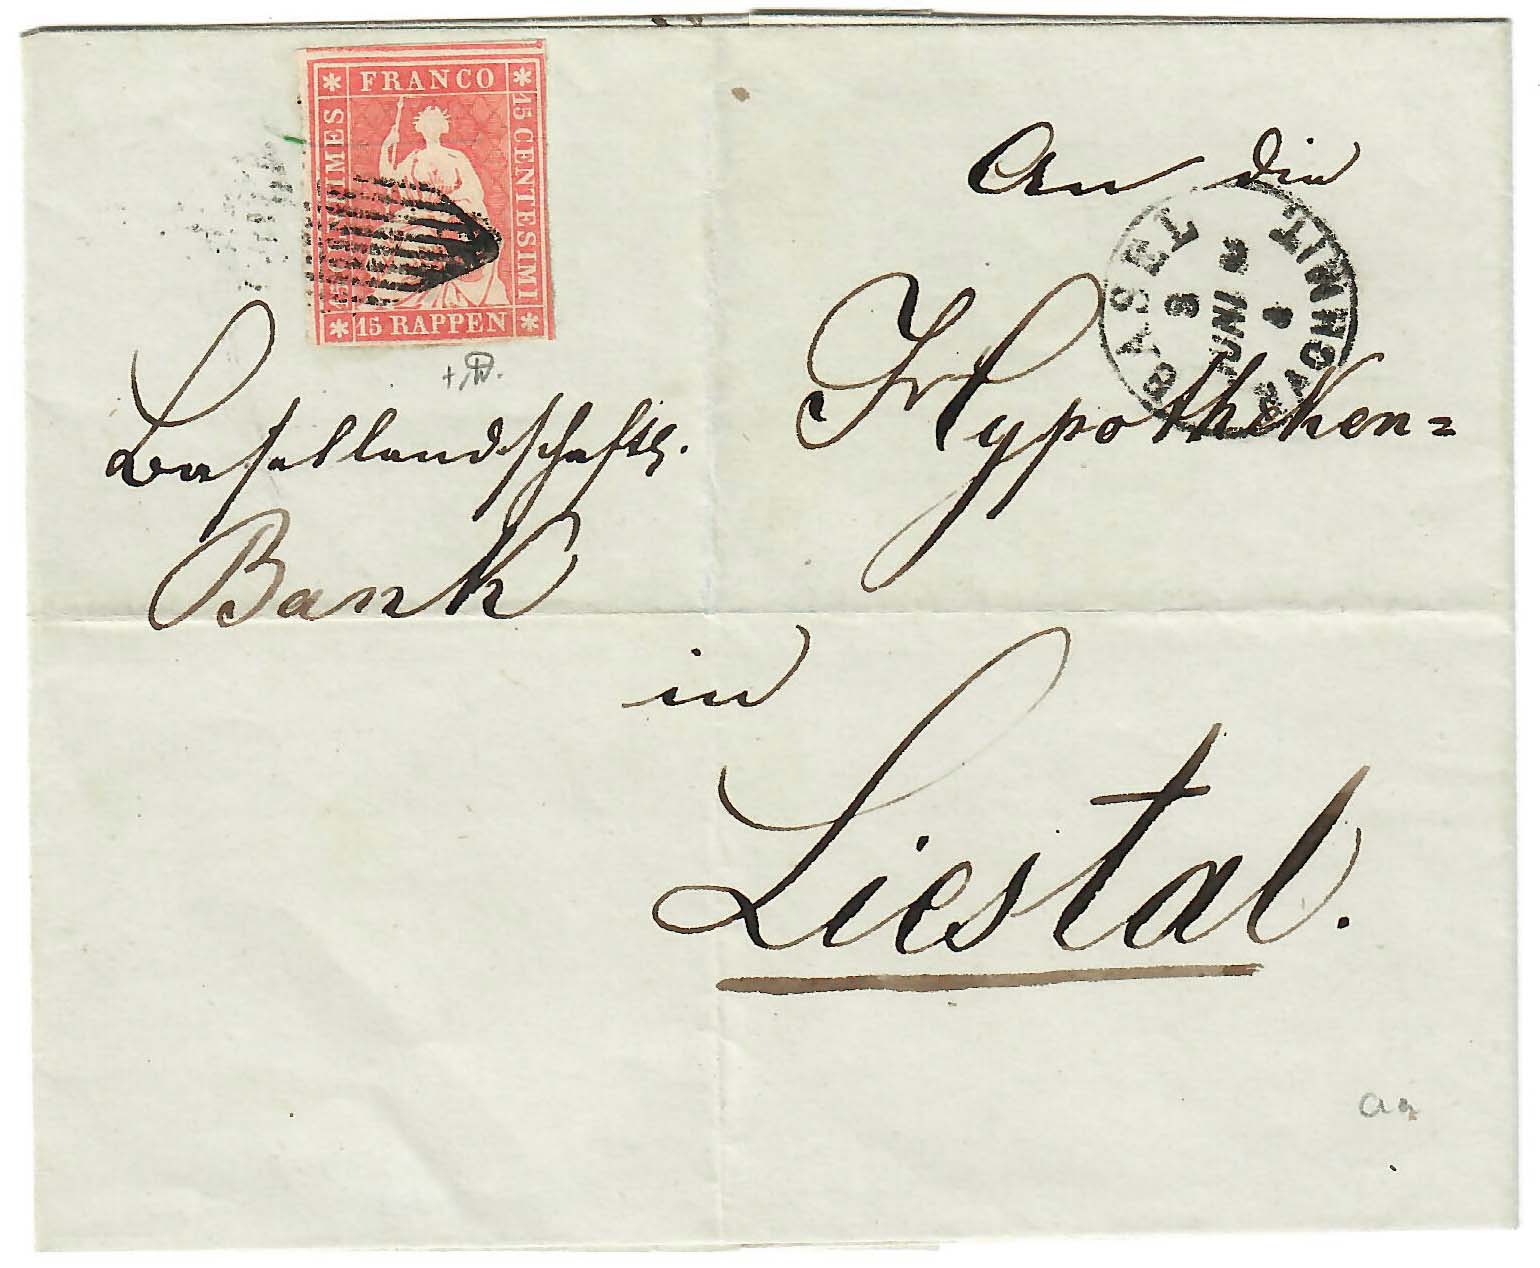 * FRANCO *
15 CENTIMES
15 CENTESIMI
* 15 RAPPEN *
An die
BASEL
8 JUNI
NACHMIT
Hypotheken=
Basellandschaftl.
Bank
in
Liestal.